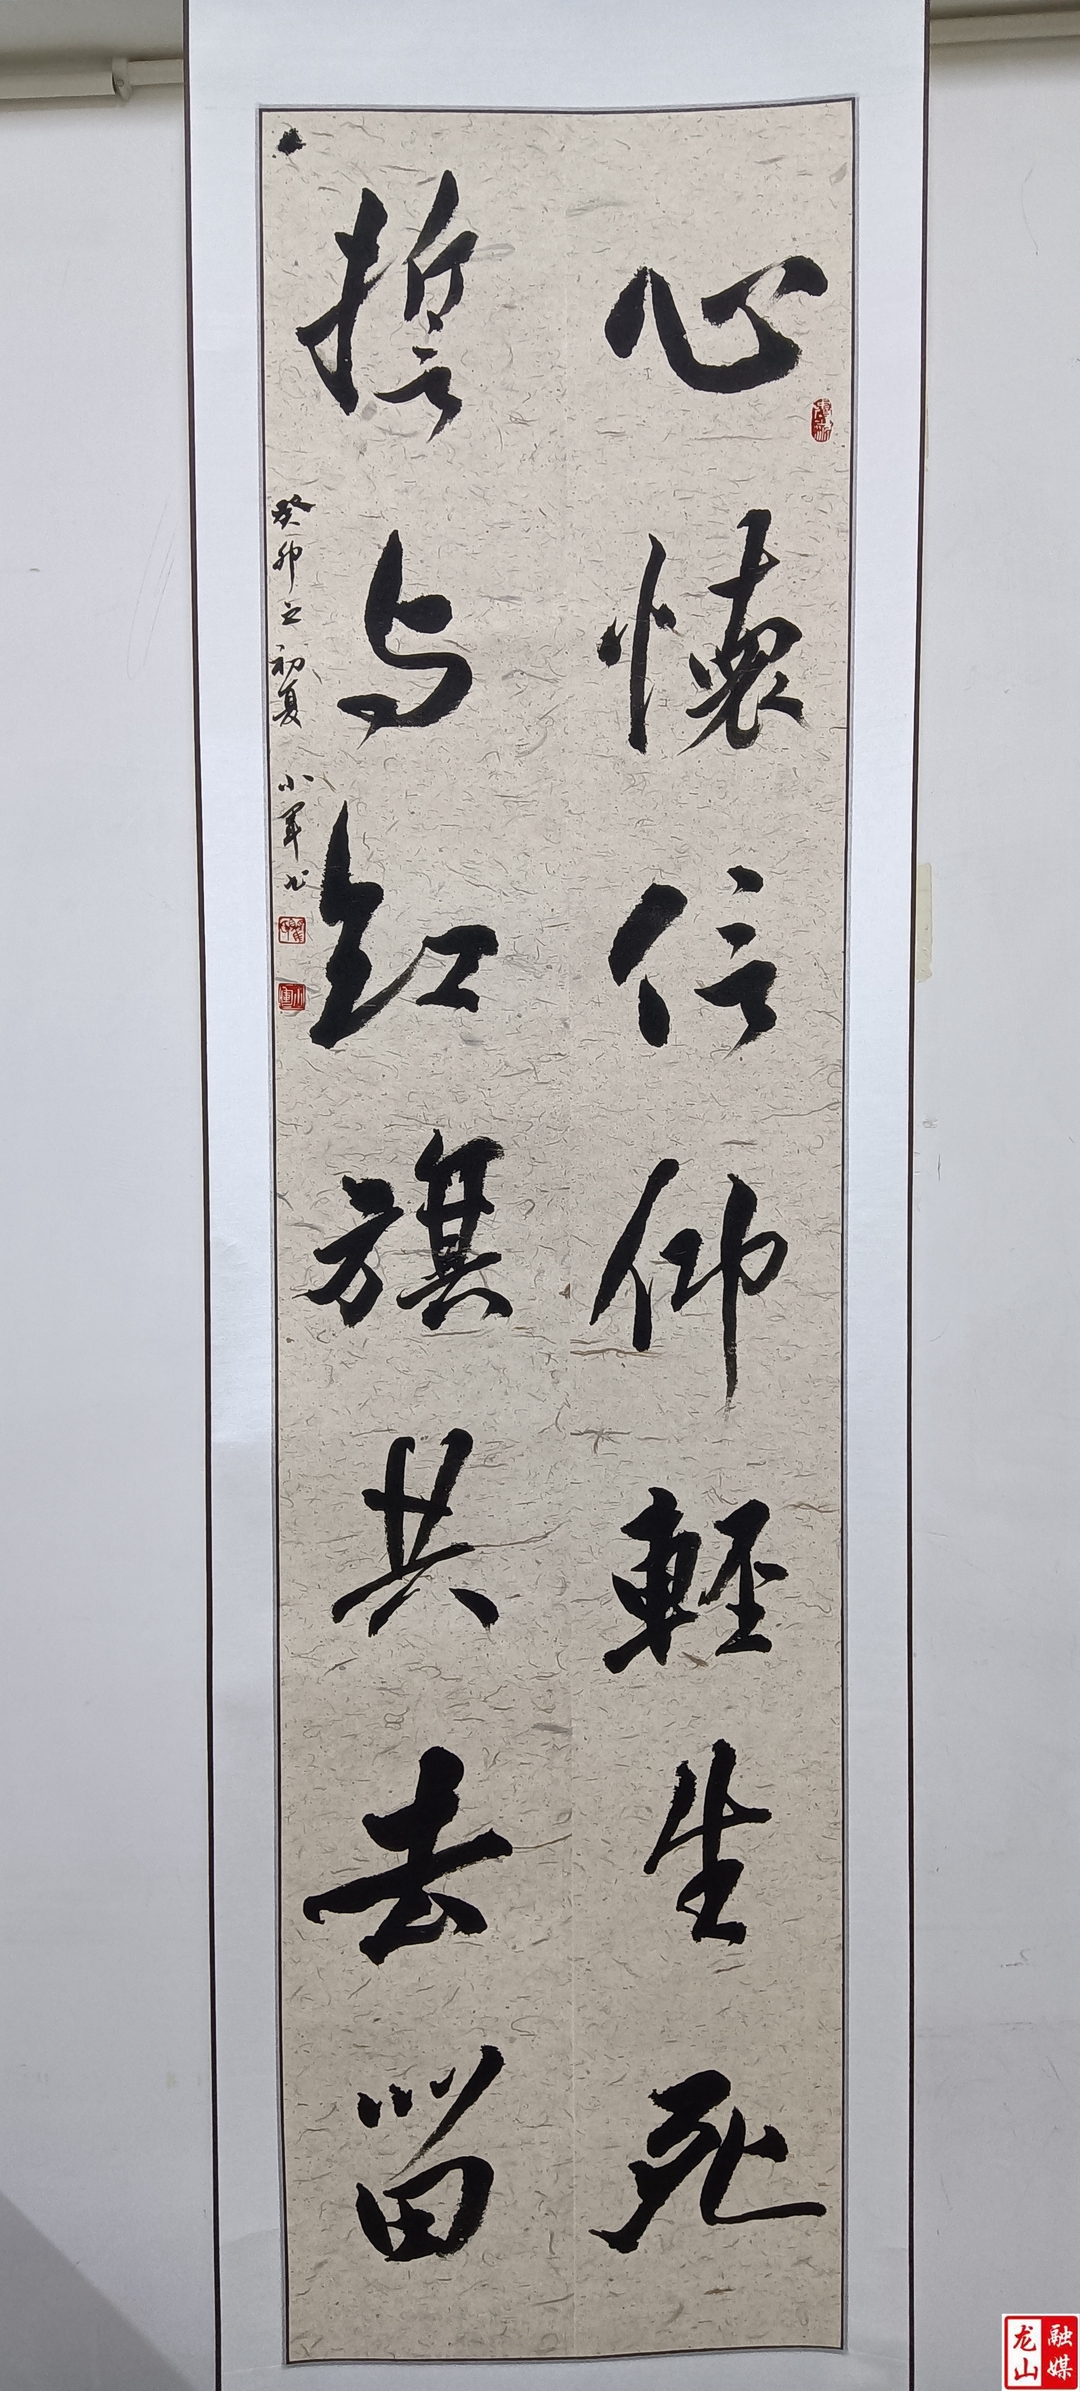 心懷信仰輕生死
誓与红旗共去留
癸卯之初夏 小軍书
龙山
融媒